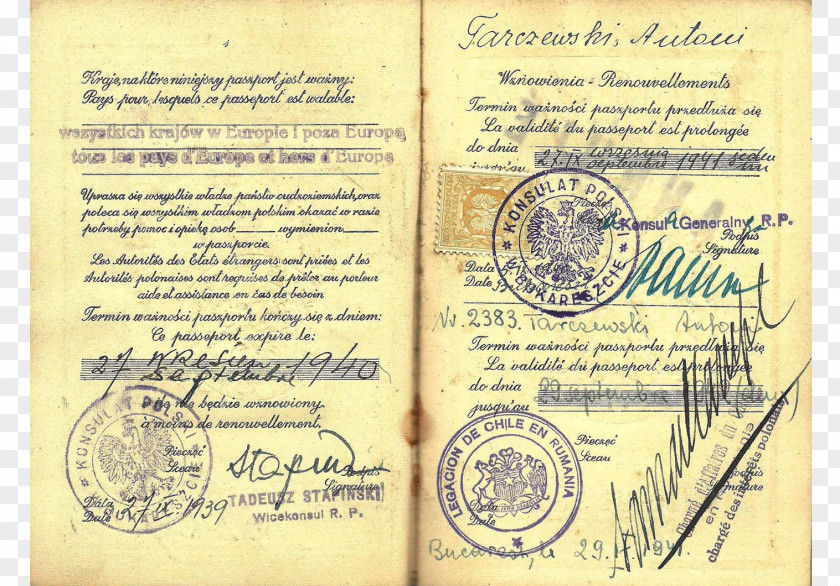 4
Kraje, na które niniejszy paszport jest ważny:
Pays pour lesquels ce passeport est walable:
wszystkich krajów w Europie i poza Europą
tous les pays d'Europe et hors d'Europe
Uprasza się wszystkie władze państw cudzoziemskich, oraz
poleca się wszystkim władzom polskim okazać w razie
potrzeby pomoc i opiekę osob wymienion
w paszporcie.
Les Autorités des Etats étrangers sont priées et les
Autorités polonaises sont requises de prêter au porteur
aide et assistance en cas de besoin
Termin ważności paszportu kończy się z dniem:
Ce passeport expire le:
27 Wrzesień 1940
Septembre
o ile nie będzie wznowiony
à moins de renouvellement.
KONSULAT POLSKI
Pieczęć
Sceau
Podpis
Signature
Data
Date
27 IX 1939
TADEUSZ STAPIŃSKI
Wicekonsul R. P.
Tarczewski, Antoni
Wznowienia - Renouvellements
Termin ważności paszportu przedłuża się
La validité du passeport est prolongée
do dnia
jusqu'au
27.IX września 1941
septembre
KONSULAT POLSKI
W BUKARESZCIE
Konsul Generalny R. P.
Podpis
Signature
Data
Date
Nr. 2383. Tarczewski Antoni
Termin ważności paszportu przedłuża się
La validité du passeport est prolongée
do dnia
jusqu'au
29 septembre
LEGACION DE CHILE EN RUMANIA
Pieczęć
Sceau
Data
Date
Podpis
Signature
Chargé d'Affaires du
chargé des intérêts polonais
Bucarest, le 29.